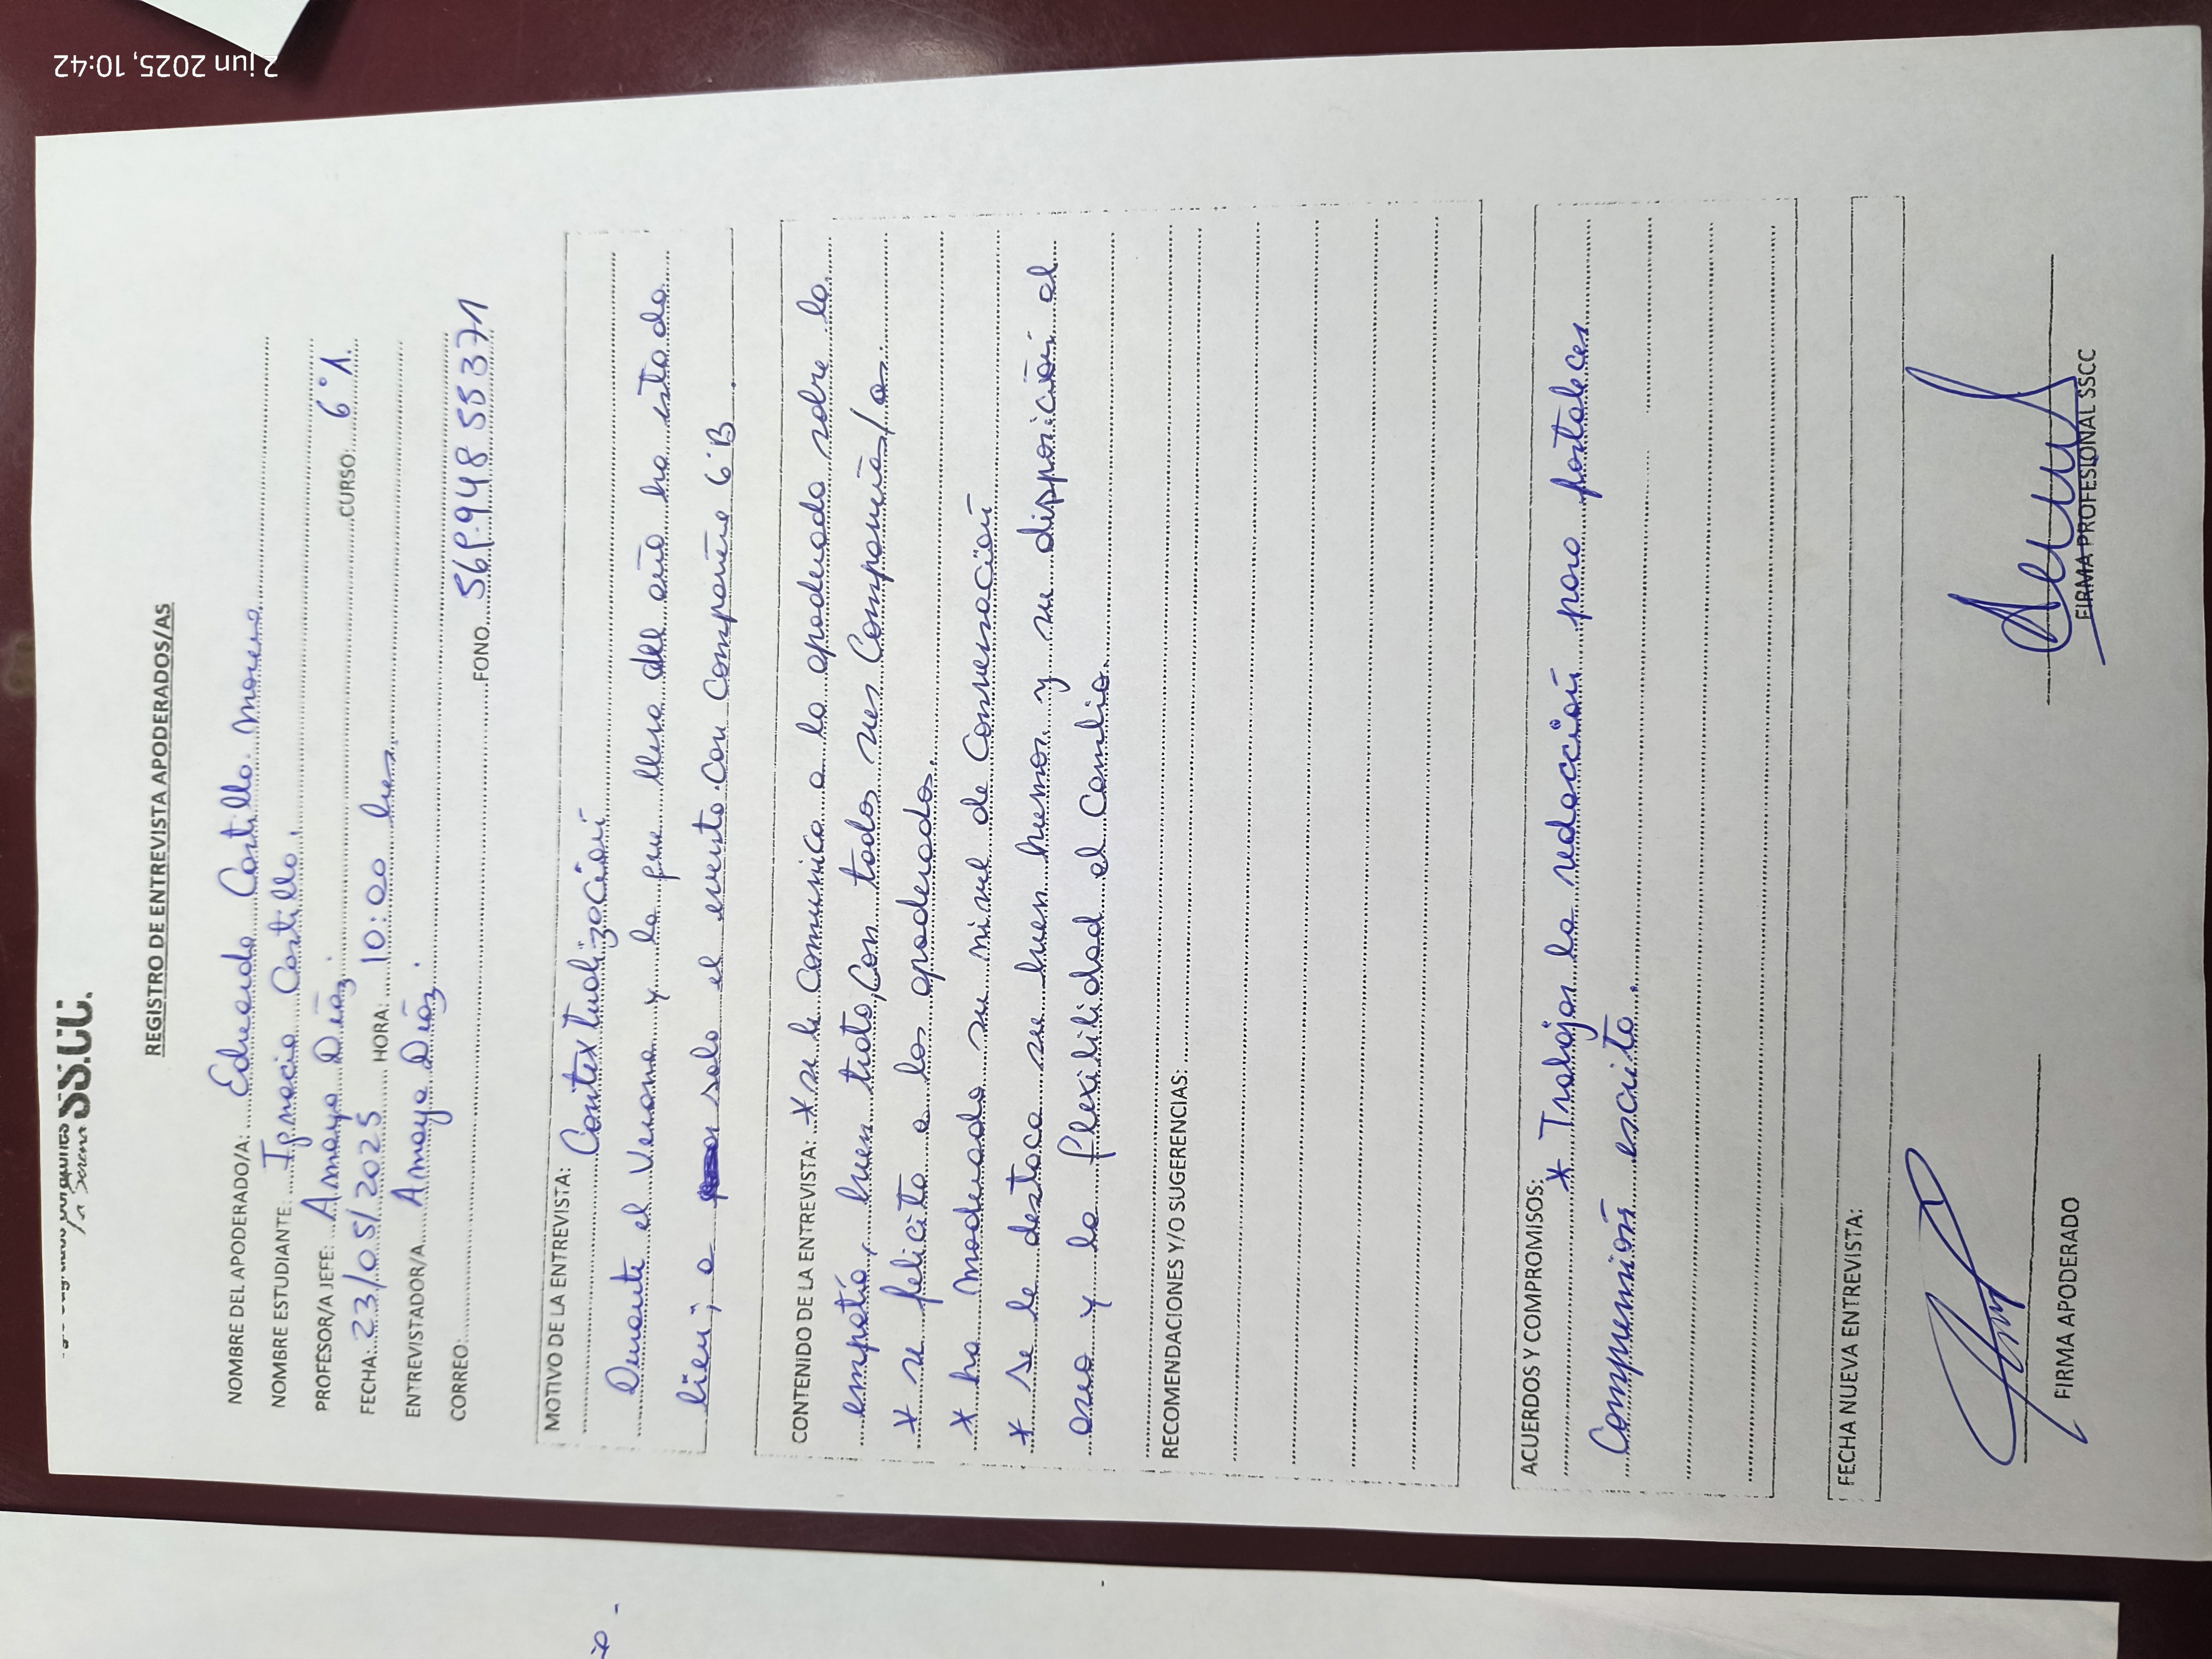 SS.CC.
La Serena
REGISTRO DE ENTREVISTA APODERADOS/AS
NOMBRE DEL APODERADO/A: Eduardo Castillo Moreno
NOMBRE ESTUDIANTE Ignacio Castillo.
PROFESOR/A JEFE: Amaya Díaz. CURSO: 6°A.
FECHA: 23/05/2025 HORA: 10:00 hrs.
ENTREVISTADOR/A Amaya Díaz.
CORREO: FONO 569.948 55371
MOTIVO DE LA ENTREVISTA: Contextualización
Durante el Verano y lo que lleva del año ha estado
bien; a solo el evento con compañero 6°B.
CONTENIDO DE LA ENTREVISTA: * se le comunica a la apoderado sobre la
empatía, buen trato, con todos sus compañeros/as.
* se felicita a los apoderados.
* ha moderado su nivel de conversación
* se le destaca su buen humor y su disposición al
aseo y la flexibilidad al cambio.
RECOMENDACIONES Y/O SUGERENCIAS:
ACUERDOS Y COMPROMISOS: * Trabajar la redacción para fortalecer
Comprensión escrita.
FECHA NUEVA ENTREVISTA:
FIRMA APODERADO
FIRMA PROFESIONAL SSCC
2 jun 2025, 10:42